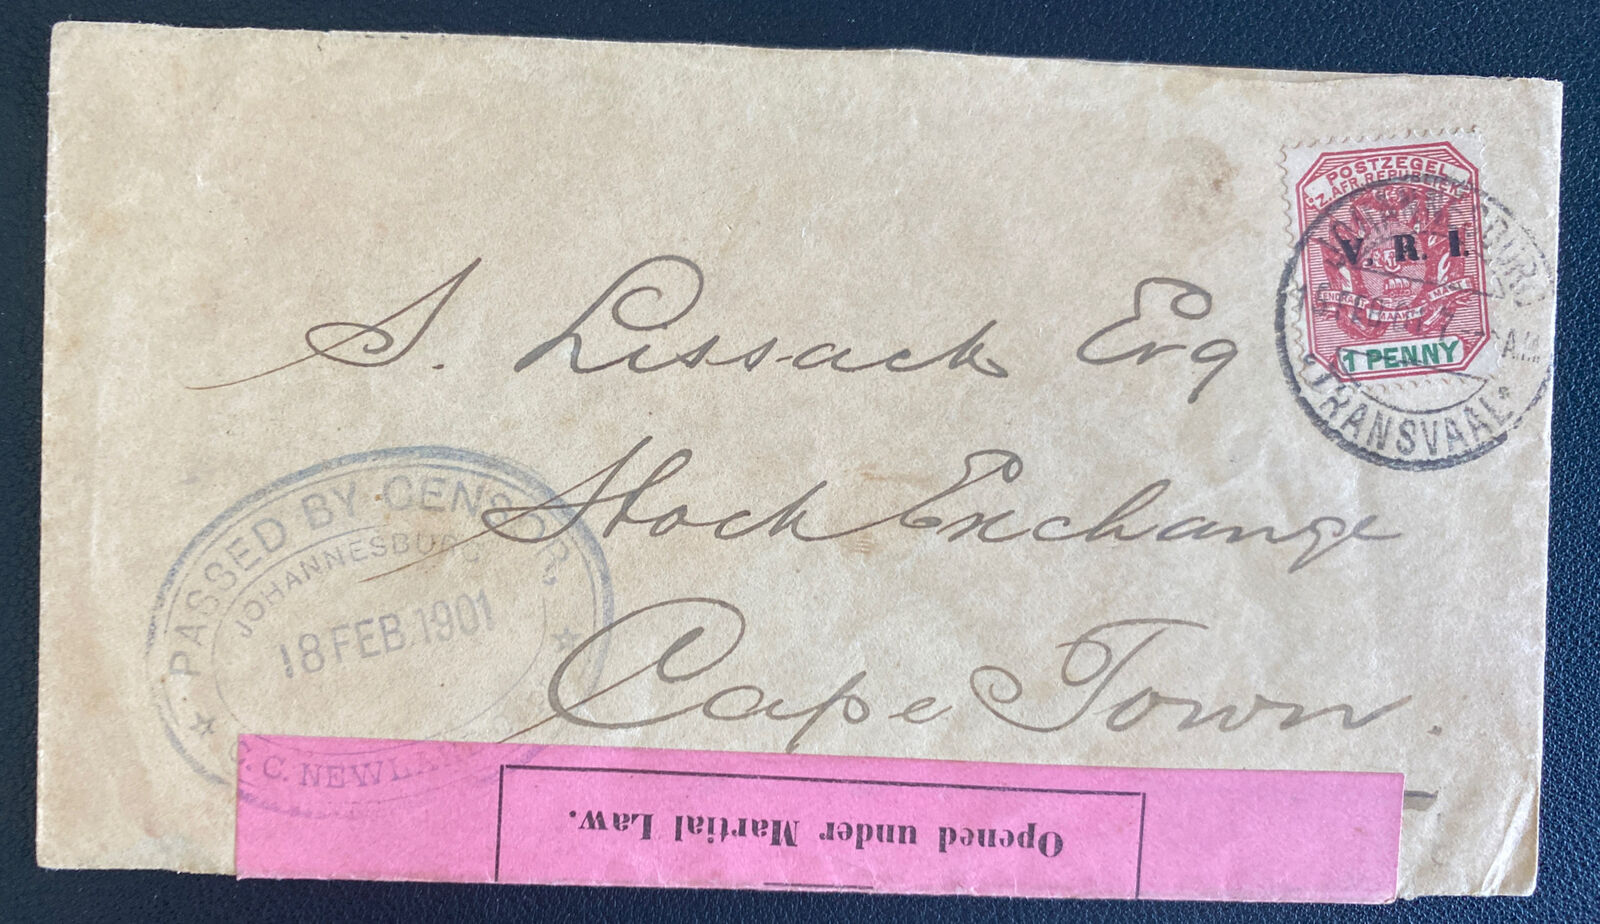 POSTZEGEL
Z. AFR. REPUBLIEK
V. R. I.
EENDRAGT MAAKT MAGT
1 PENNY
JOHANNESBURG
AM
TRANSVAAL
S. Lissack Esq
Stock Exchange
Cape Town.
PASSED BY CENSOR,
JOHANNESBURG
18 FEB. 1901
C. NEWLA
Opened under Martial Law.